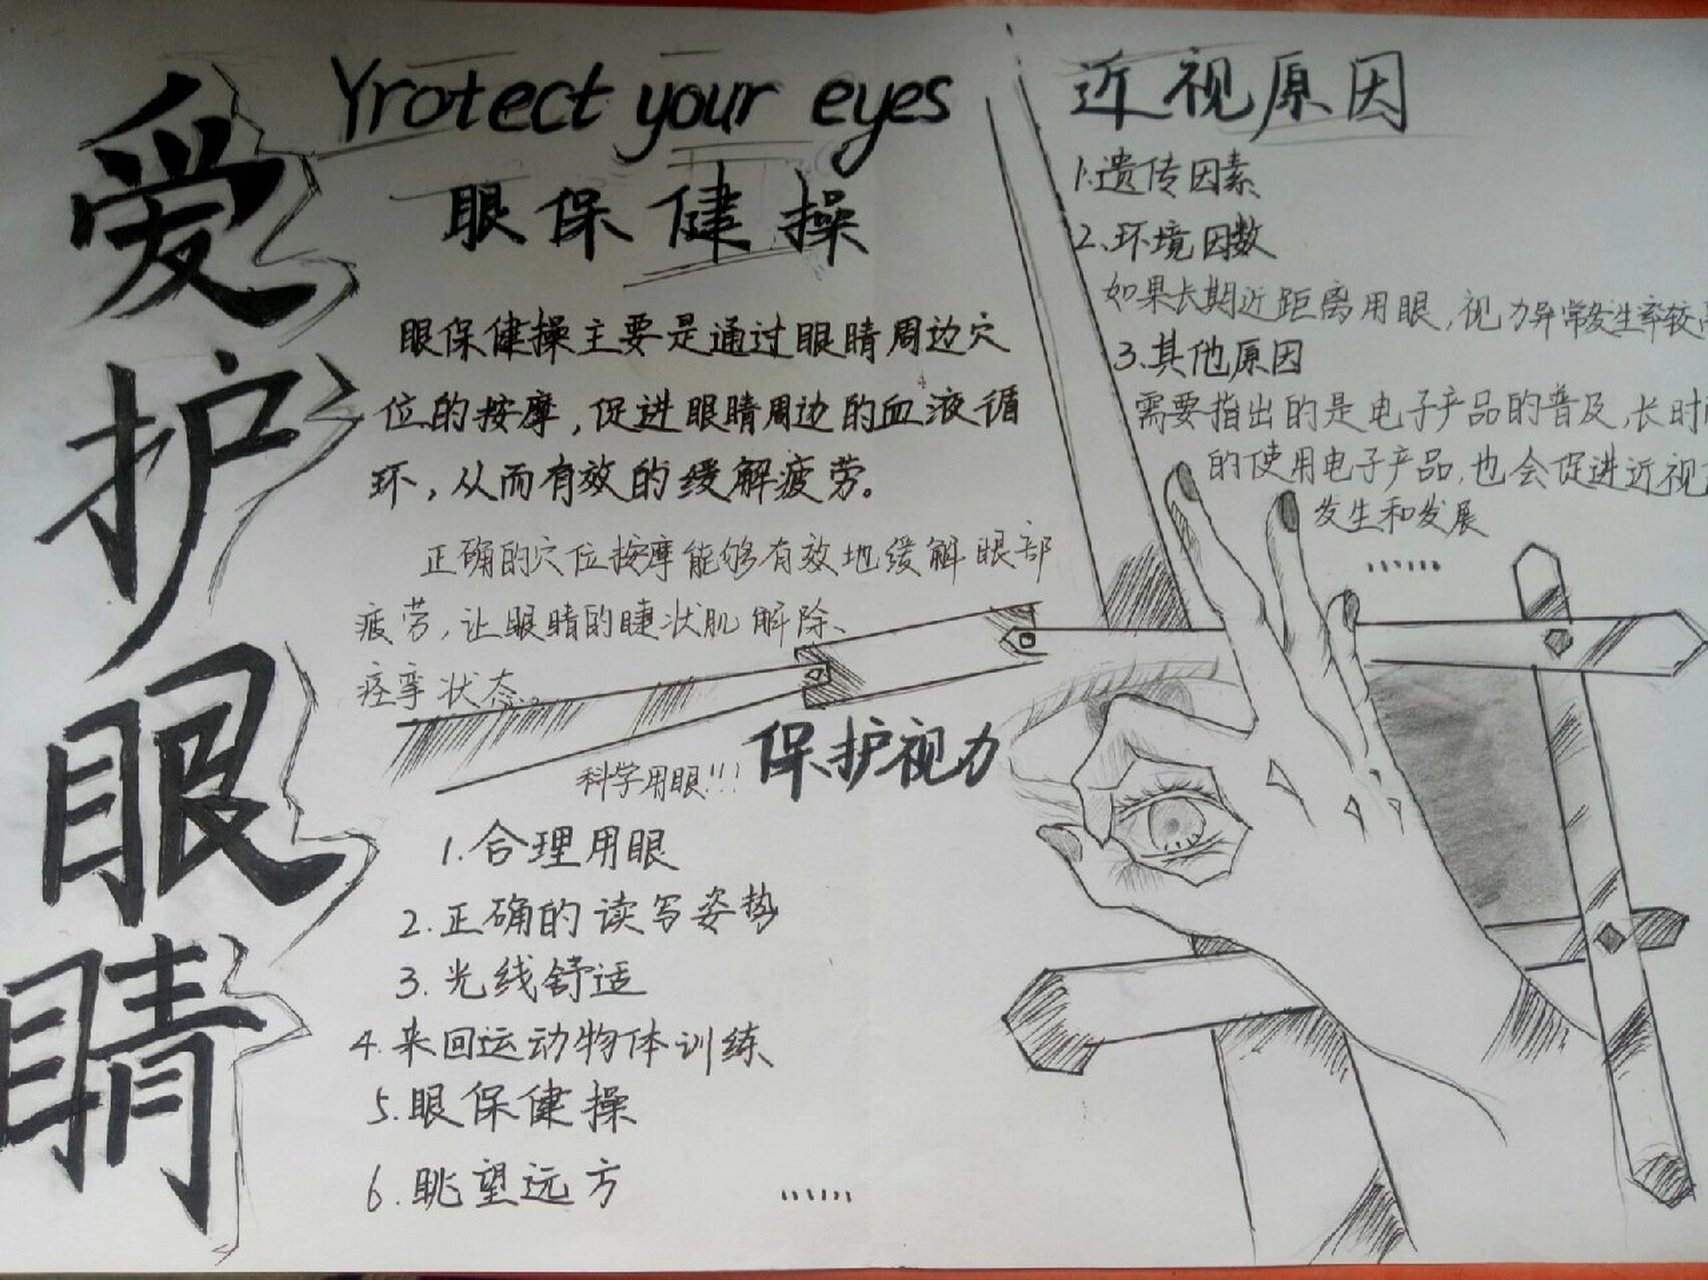 爱护眼睛
Yrotect your eyes
眼保健操
眼保健操主要是通过眼睛周边穴
位的按摩，促进眼睛周边的血液循
环，从而有效的缓解疲劳。
正确的穴位按摩能够有效地缓解眼部
疲劳，让眼睛的睫状肌解除
痉挛状态。
科学用眼!!! 保护视力
1.合理用眼
2.正确的读写姿势
3.光线舒适
4.来回运动物体训练
5.眼保健操
6.眺望远方
......
近视原因
1.遗传因素
2、环境因数
如果长期近距离用眼，视力异常发生率较
3、其他原因
需要指出的是电子产品的普及，长时
的使用电子产品，也会促进近视
发生和发展
......